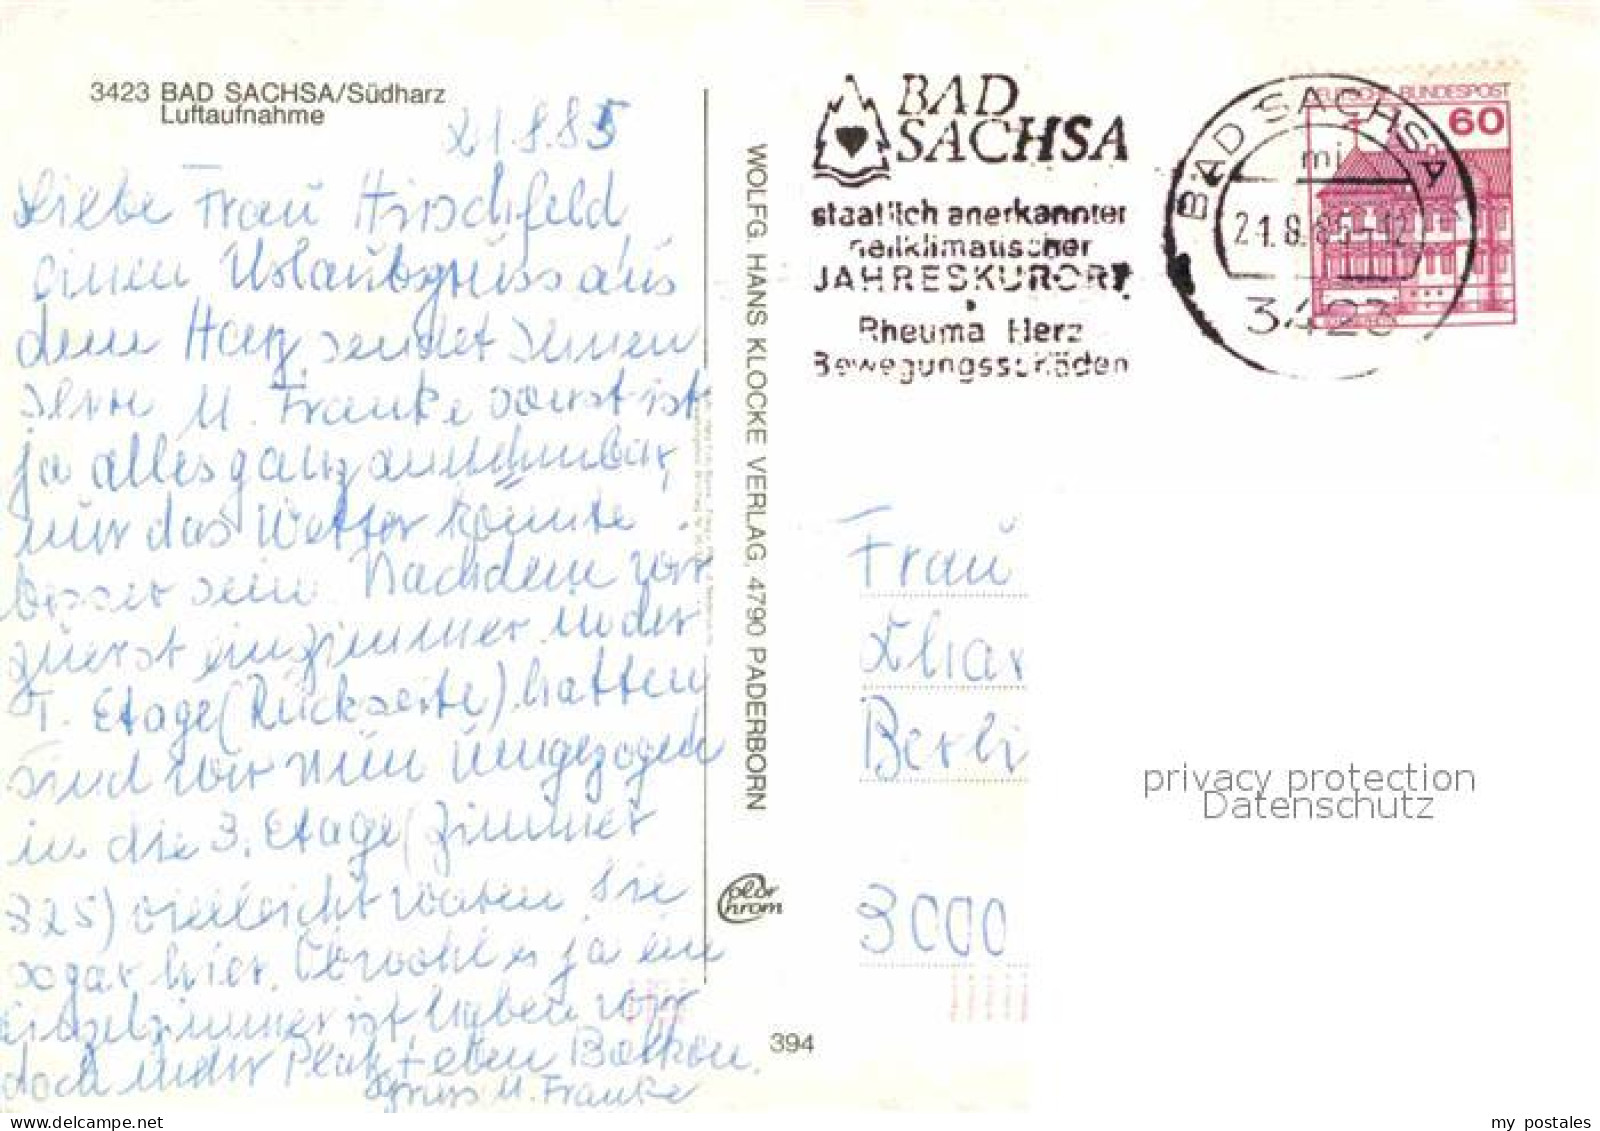 3423 BAD SACHSA/Südharz
Luftaufnahme
21.8.85
Liebe Frau Hirschfeld
einen Urlaubsgruss aus
dem Harz sendet Ihnen
Ihre M. Franke sonst ist
ja alles ganz annehmbar,
nur das Wetter könnte
besser sein. Nachdem wir
zuerst ein Zimmer in der
1. Etage (Rückseite) hatten
sind wir nun umgezogen
in die 3. Etage (Zimmer
325) vielleicht waren Sie
sogar hier. Obwohl es ja ein
Einzelzimmer ist haben wir
doch mehr Platz + eben Balkon.
Gruss M. Franke
WOLFG. HANS KLOCKE VERLAG, 4790 PADERBORN
Color
Chrom
394
BAD
SACHSA
staatlich anerkannter
heilklimatischer
JAHRESKURORT
Rheuma Herz
Bewegungsschäden
BAD SACHSA
mi
21.8.85-12
3423
DEUTSCHE BUNDESPOST
60
Frau
Char
Berli
3000
privacy protection
Datenschutz
www.delcampe.net
my_postales